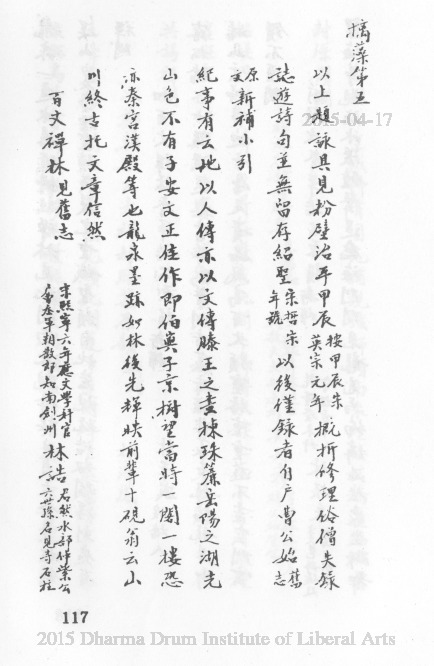 摛藻第五
2015-04-17
以上題詠具見粉壁治平甲辰
按甲辰宋
英宗元年
概拆修理俗僧失錄
誌遊詩句並無留存紹聖
宋哲宗
年號
以後僅錄者自戶曹公始
舊
志
原
文
新補小引
紀事有云地以人傳亦以文傳滕王之畫棟珠簾岳陽之湖光
山色不有子安文正佳作即伯輿子京樹望當時一閣一樓恐
亦秦宮漢殿等也龍泉墨跡如林後先輝映前輩十硯翁云山
川終古托文章信然
百丈禪林見舊志
宋熙寧六年應文學科官
戶部左軍朝散郎知南劍州
林誥
君然水部仲紫公
六世孫名見寺石柱
117
2015 Dharma Drum Institute of Liberal Arts